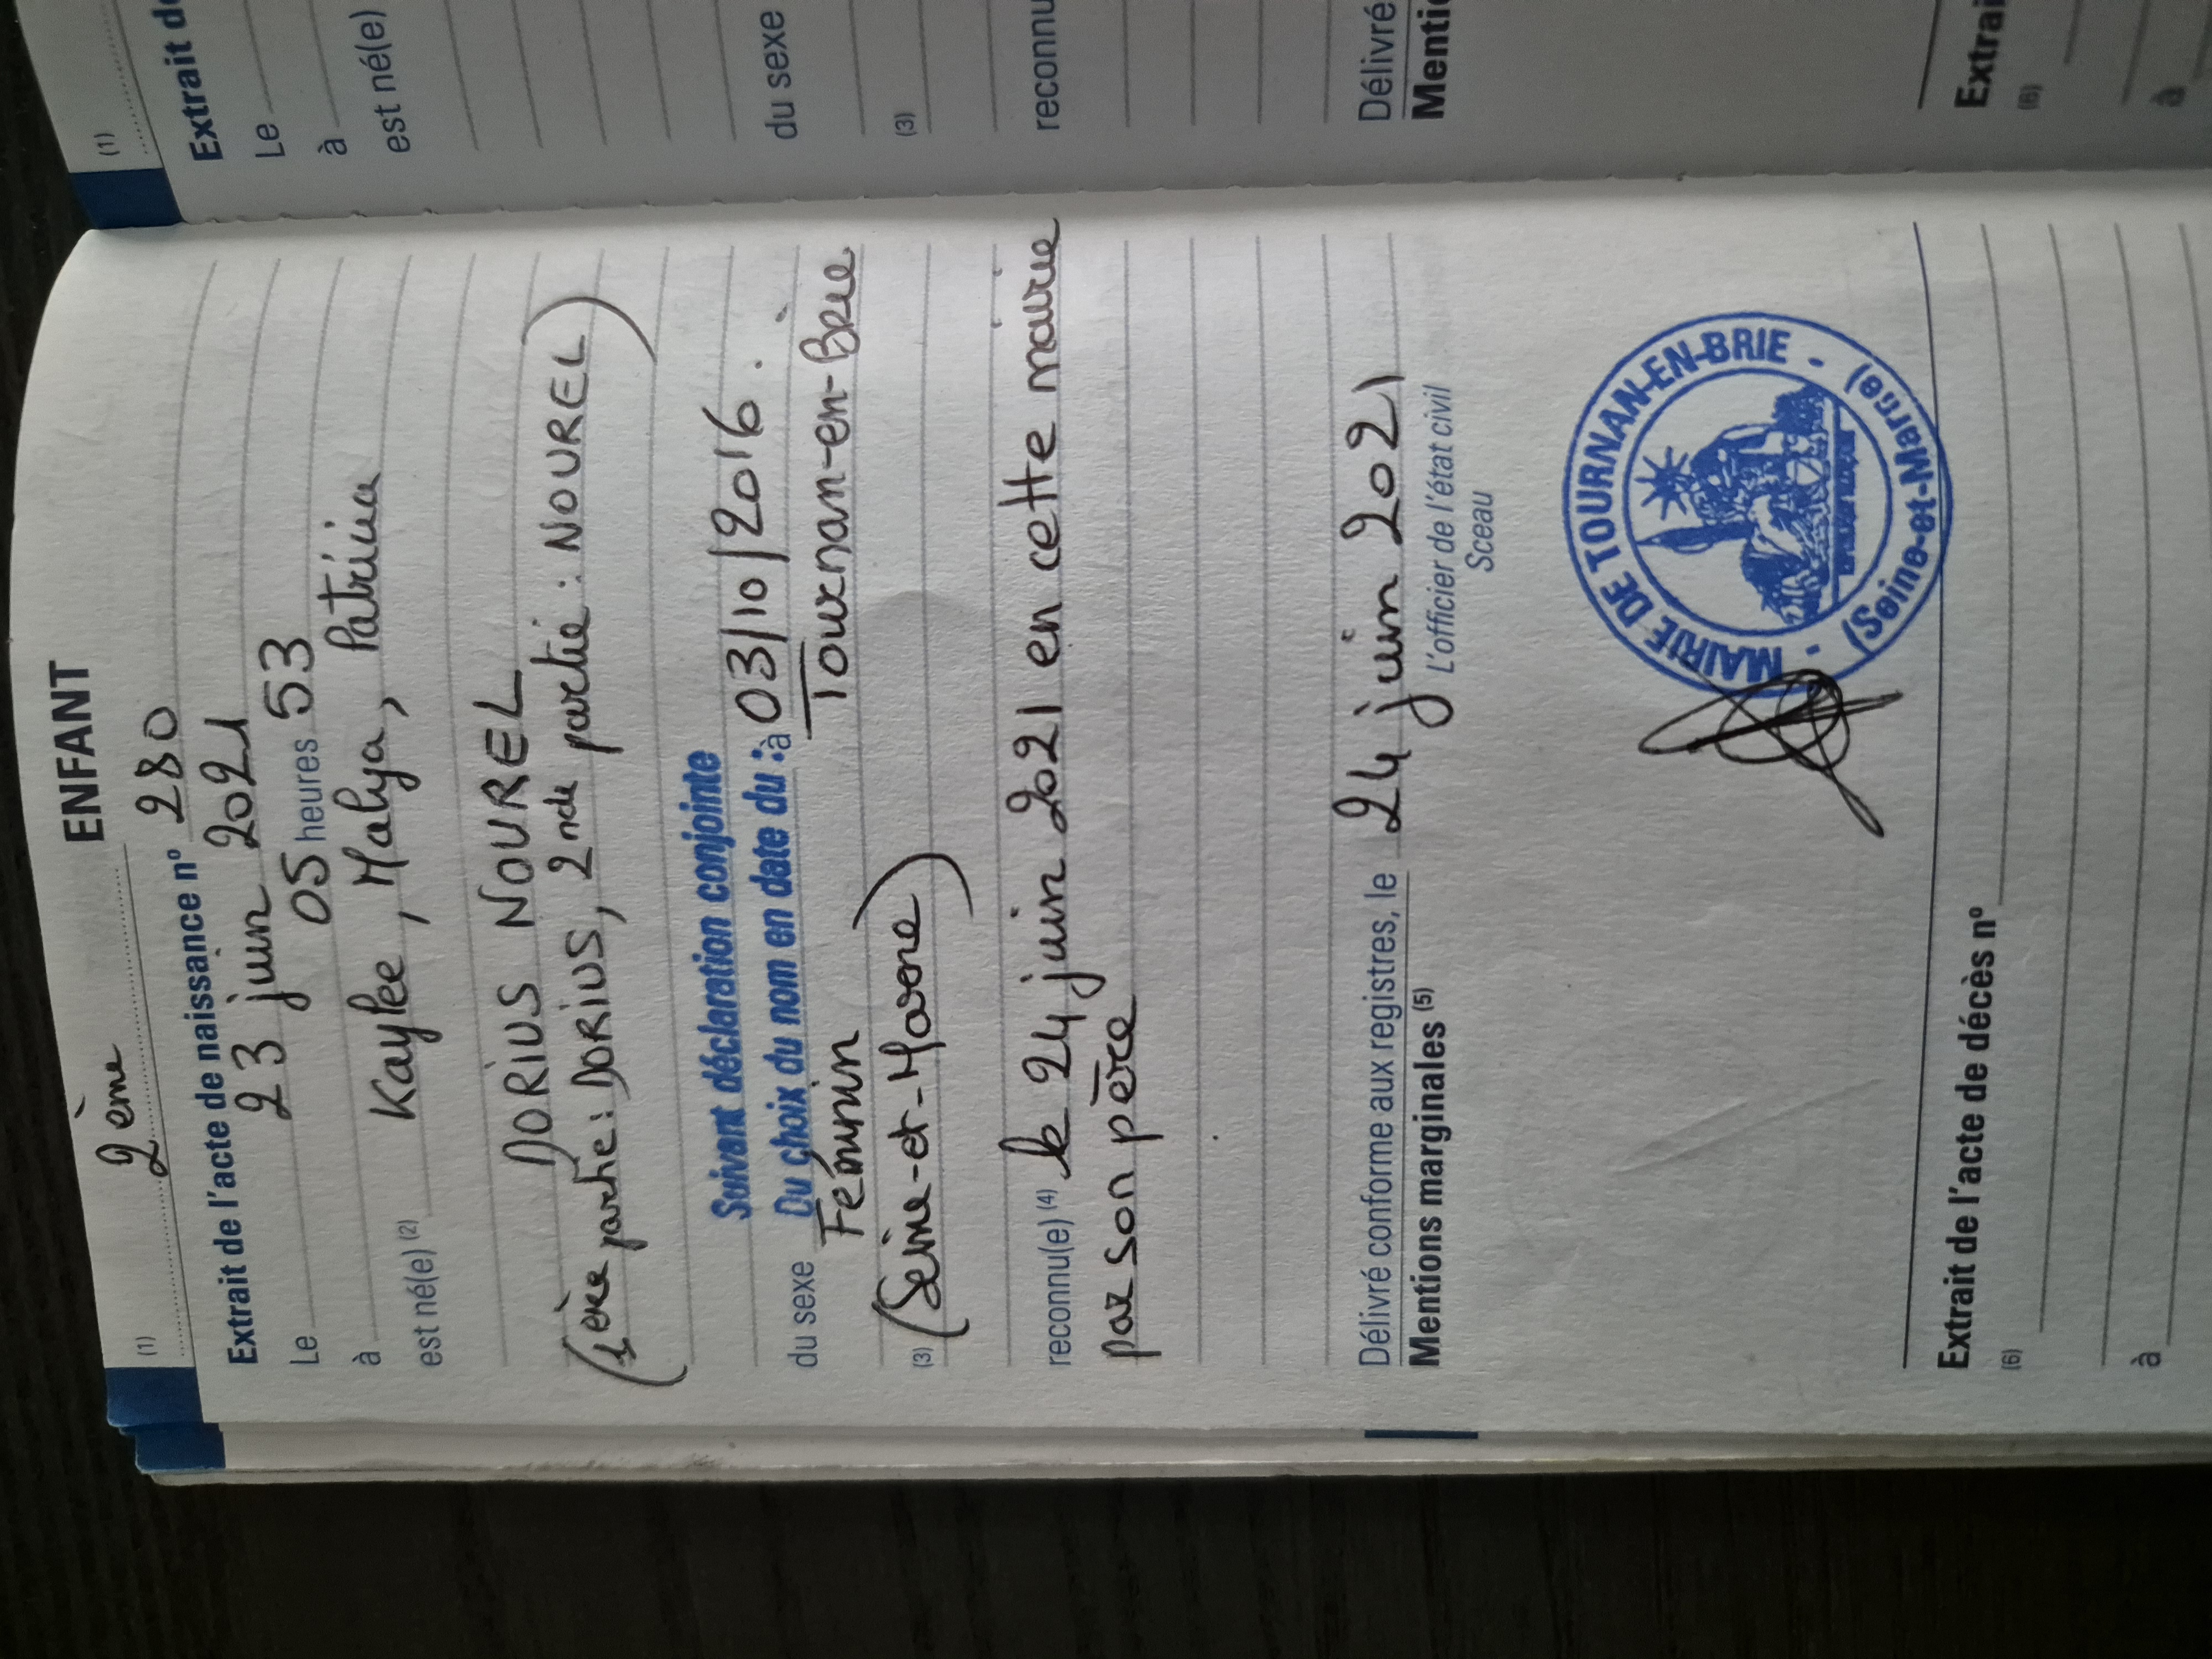 (1) 2ème ENFANT
Extrait de l'acte de naissance nº 280
Le 23 juin 2021
à 05 heures 53
est né(e) (2) Kaylee, Malya, Patricia
DORIUS NOUREL
(1ère partie : DORIUS, 2nde partie : NOUREL)
Suivant déclaration conjointe
Du choix du nom en date du : 03/10/2016.
du sexe Féminin à Tournan-en-Brie
(3) (Seine-et-Marne)
reconnu(e) (4) le 24 juin 2021 en cette mairie
par son père
Délivré conforme aux registres, le 24 juin 2021
Mentions marginales (5)
L'officier de l'état civil
Sceau
MAIRIE DE TOURNAN-EN-BRIE
(Seine-et-Marne)
Extrait de l'acte de décès nº
(6)
à
(1)
Extrait de
Le
à
est né(e)
du sexe
(3)
reconnu
Délivré
Mentio
Extrai
(6)
à